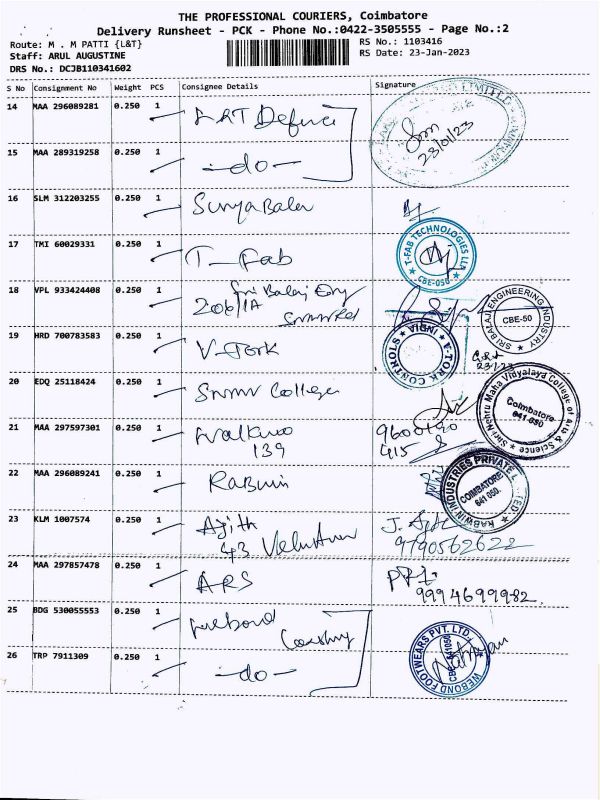 THE PROFESSIONAL COURIERS, Coimbatore
Delivery Runsheet - PCK - Phone No.:0422-3505555 - Page No.:2
Route: M . M PATTI {L&T} RS No.: 1103416
Staff: ARUL AUGUSTINE RS Date: 23-Jan-2023
DRS No.: DCJB110341602
S No Consignment No Weight PCS Consignee Details Signature
14 MAA 296089281 0.250 1
23/01/23
15 MAA 289319258 0.250 1 -do-
16 SLM 312203255 0.250 1 Surya Bala
17 TMI 60029331 0.250 1 T-Fab
T-FAB TECHNOLOGIES LLP CBE-050
18 VPL 933424408 0.250 1 Sri Balaji Eng
206/1A
SRI BALAJI ENGINEERING INDUSTRY CBE-50
19 HRD 700783583 0.250 1 V-Tork
A-TORK CONTROLS INDIA
20 EDQ 25118424 0.250 1 Snmv College
Shri Nehru Maha Vidyalaya College of Arts & Science Coimbatore 641-050
21 MAA 297597301 0.250 1
139 415
22 MAA 296089241 0.250 1 Rabwin
RABWIN INDUSTRIES PRIVATE LIMITED COIMBATORE 641 050.
23 KLM 1007574 0.250 1 Ajith
43
9790562622
24 MAA 297857478 0.250 1 ARS
9994699982
25 BDG 530055553 0.250 1 Webond
WEBOND FOOTWEARS PVT. LTD.
26 TRP 7911309 0.250 1 -do-